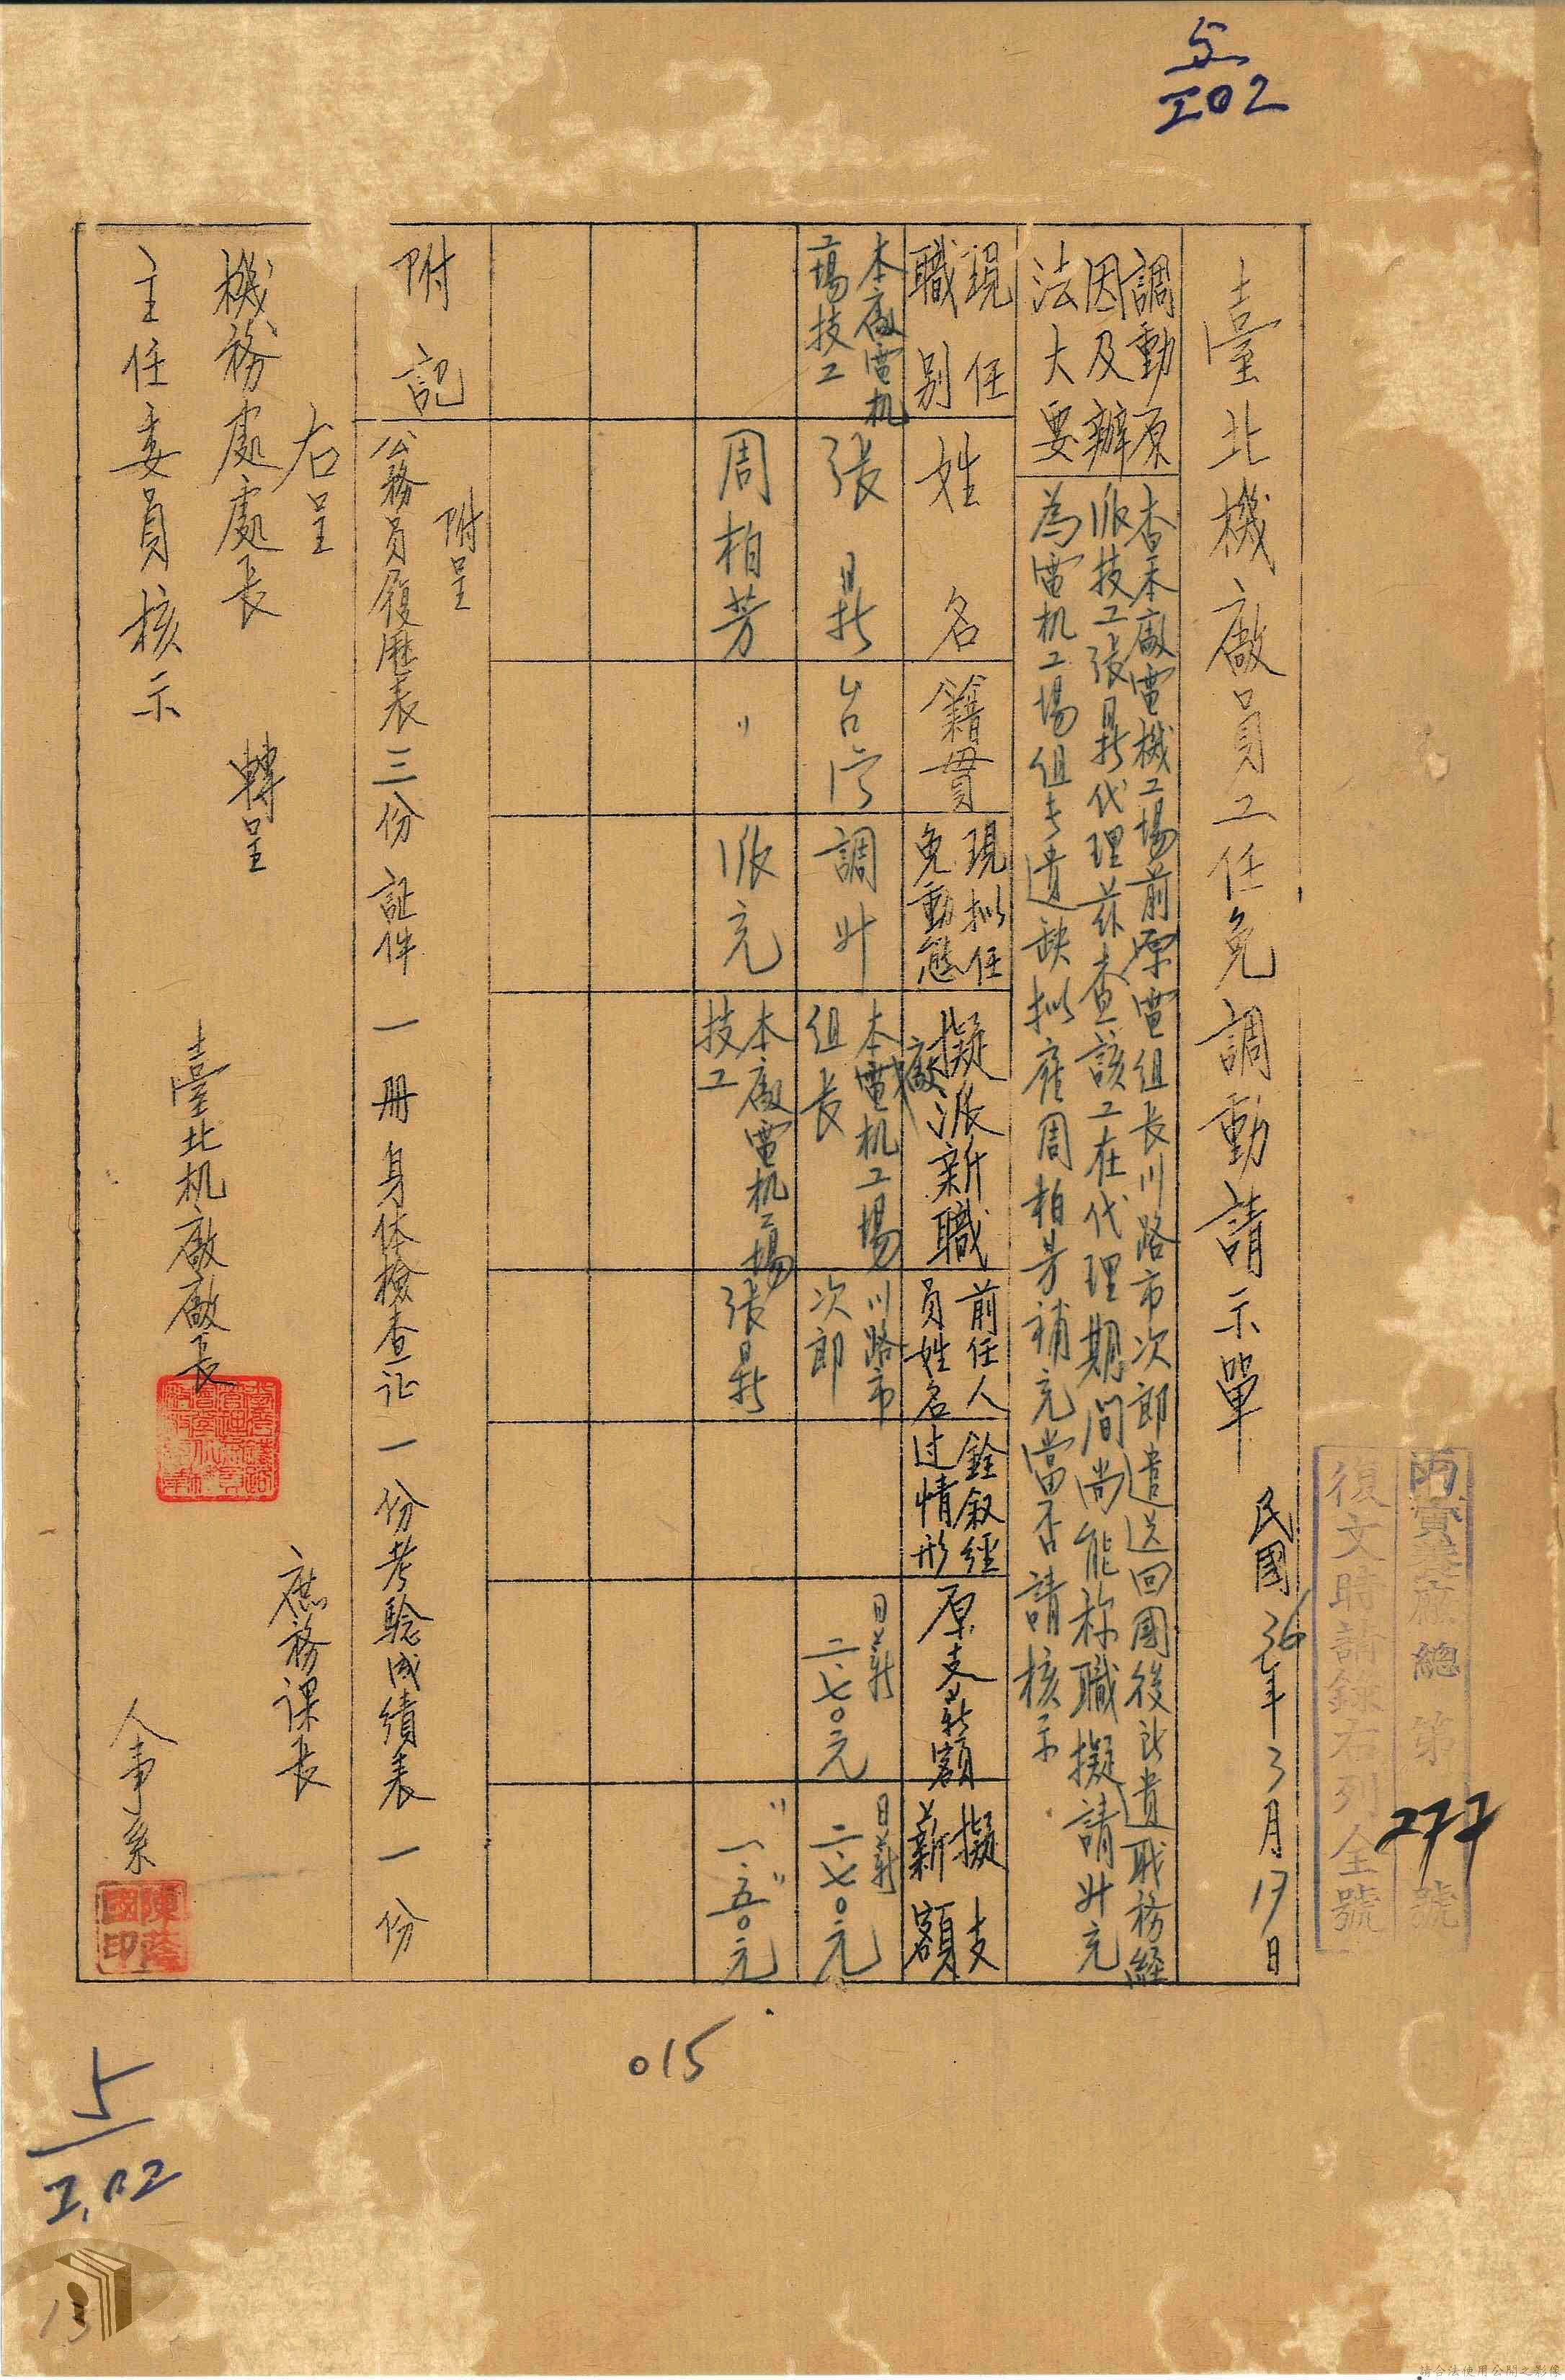 5
I02
臺北機廠員工任免調動請示單
民國36年3月17日
總 第277號
復文時請錄右列全號
調動原
因及辦
法大要
查本廠電機工場前原電組長川路市次郎遣送回國後所遺職務經
派技工張鼎代理茲查該工在代理期間尚能称職擬請升充
為電机工場組長遺缺拟雇周柏芳補充當否請核示
現任
職別
姓名
籍貫
現拟任
免動態
擬派新職
前任人
員姓名
銓敘經
过情形
原支薪額
擬支
薪額
本廠電机
工場技工
張鼎
台湾
調升
本廠電机工場
組長
川路市
次郎
日薪
二.七〇元
日薪
二.七〇元
周柏芳
〃
派充
本廠電机工場
技工
張鼎
〃 〃
一.五〇元
附記
附呈
公務員履歷表三份証件一冊身体檢查証一份考驗成績表一份
右呈
機務處處長 轉呈
主任委員核示
臺北机廠廠長
庶務课長
人事系
陳
國印
015
5
I.02
13
請合法使用公開之影像